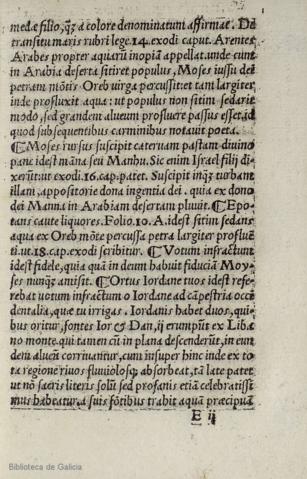 medæ filio, qȝ a colore denominatum affirmāt. De
transitu maris rubri lege.14. exodi caput. Arentes
Arabes propter aquarū inopiā appellat. unde cum
in Arabia deserta sitiret populus, Moses iussu dei
petram mōtis Oreb uirga percussit et tam largiter
inde profluxit aqua: ut populus non sitim sedarit
modo, sed grandem alueum profluere passus esset. id
quod subsequentibus carminibus notauit poeta.
¶Moses rursus suscipit cateruam pastam diuino
pane idest māna seu Manhu. Sic enim Israel filij di-
xerūt: ut exodi.16. cap. patet. Suscipit inqȝ turbam
illam, appositorie dona ingentia dei. quia ex dono
dei Manna in Arabiam desertam pluuit. ¶Epo-
tans caute liquores. Folio.10. A. idest sitim sedans
aqua ex Oreb mōte percussa petra largiter profluē
ti. ut.18. cap. exodi scribitur. ¶Votum infractum
idest fidele, quia quā in deum habuit fiduciā Moy-
ses nunqȝ amisit. ¶Ortus Iordane tuos idest refe-
rebat uotum infractum o Iordane ad cāpestria occi
dentalia, quæ tu irrigas. Iordanis habet duos, qui-
bus oritur, fontes Ior & Dan, ij erumpūt ex Liba
no monte. qui tamen cū in plana descenderūt, in eun
dem alueū corriuantur, cum insuper hinc inde ex to
ta regione riuos fluuiolosqȝ absorbeat, tā late patet
ut nō sacris literis solū sed profanis etiā celebratissi
mus habeatur, a suis fōtibus trahit aquā præcipuā
E ij
Biblioteca de Galicia